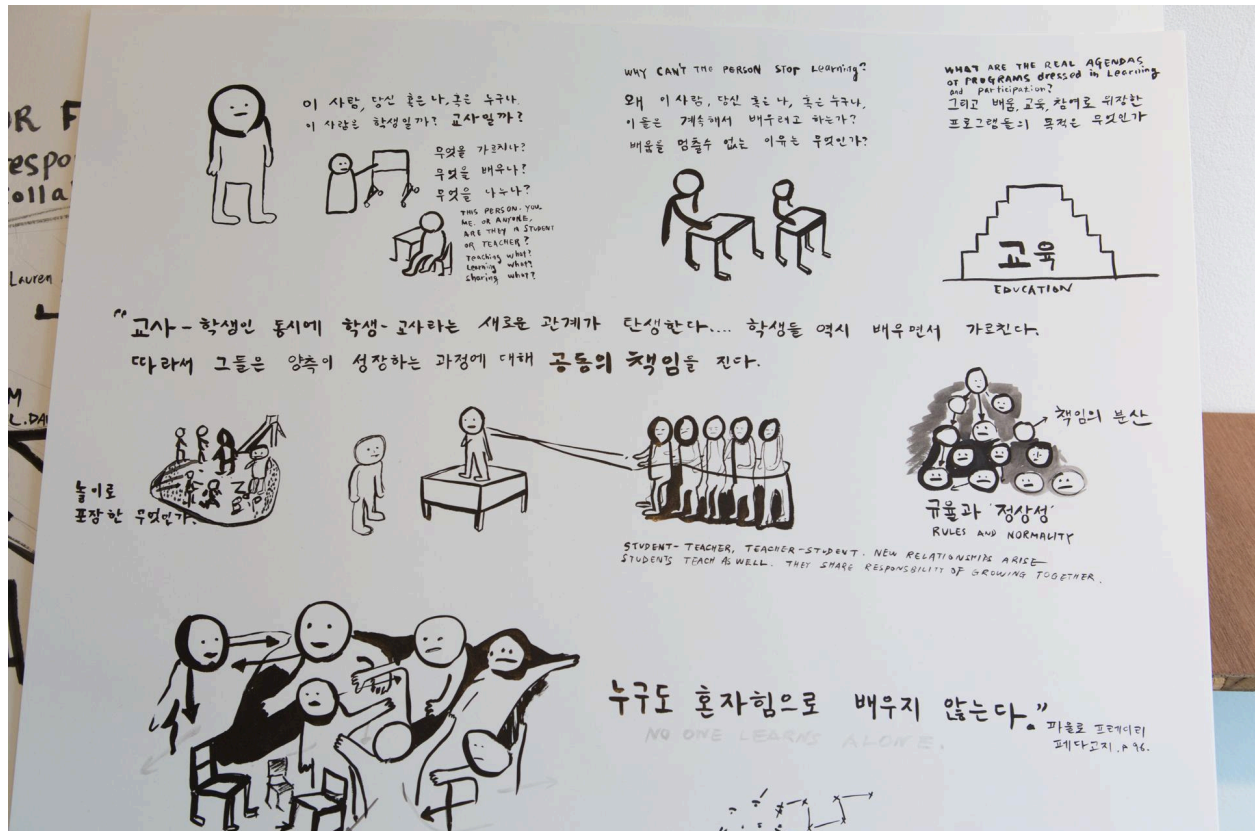 이 사람, 당신 혹은 나, 혹은 누구나.
이 사람은 학생일까? 교사일까?
무엇을 가르치나?
무엇을 배우나?
무엇을 나누나?
THIS PERSON. YOU
ME. OR ANYONE,
ARE THEY A STUDENT
OR TEACHER?
Teaching what?
Learning what?
Sharing what?
WHY CAN'T THE PERSON STOP Learning?
왜 이 사람, 당신 혹은 나, 혹은 누구나,
이들은 계속해서 배우려고 하는가?
배움을 멈출수 없는 이유는 무엇인가?
WHAT ARE THE REAL AGENDAS
OF PROGRAMS dressed in Learning
and participation?
그리고 배움, 교육, 참여로 위장한
프로그램들의 목적은 무엇인가
교육
EDUCATION
"교사-학생인 동시에 학생-교사라는 새로운 관계가 탄생한다.... 학생들 역시 배우면서 가르친다.
따라서 그들은 양측이 성장하는 과정에 대해 공동의 책임를 진다.
놀이로
포장한 무엇인가.
책임의 분산
규율과 '정상성'
RULES AND NORMALITY
STUDENT-TEACHER, TEACHER-STUDENT. NEW RELATIONSHIPS ARISE
STUDENTS TEACH AS WELL. THEY SHARE RESPONSBILITY OF GROWING TOGETHER.
누구도 혼자힘으로 배우지 않는다."
NO ONE LEARNS ALONE.
파울로 프레이리
페다고지. P 96.
R F
respo
olla
Lauren
M
L.DA